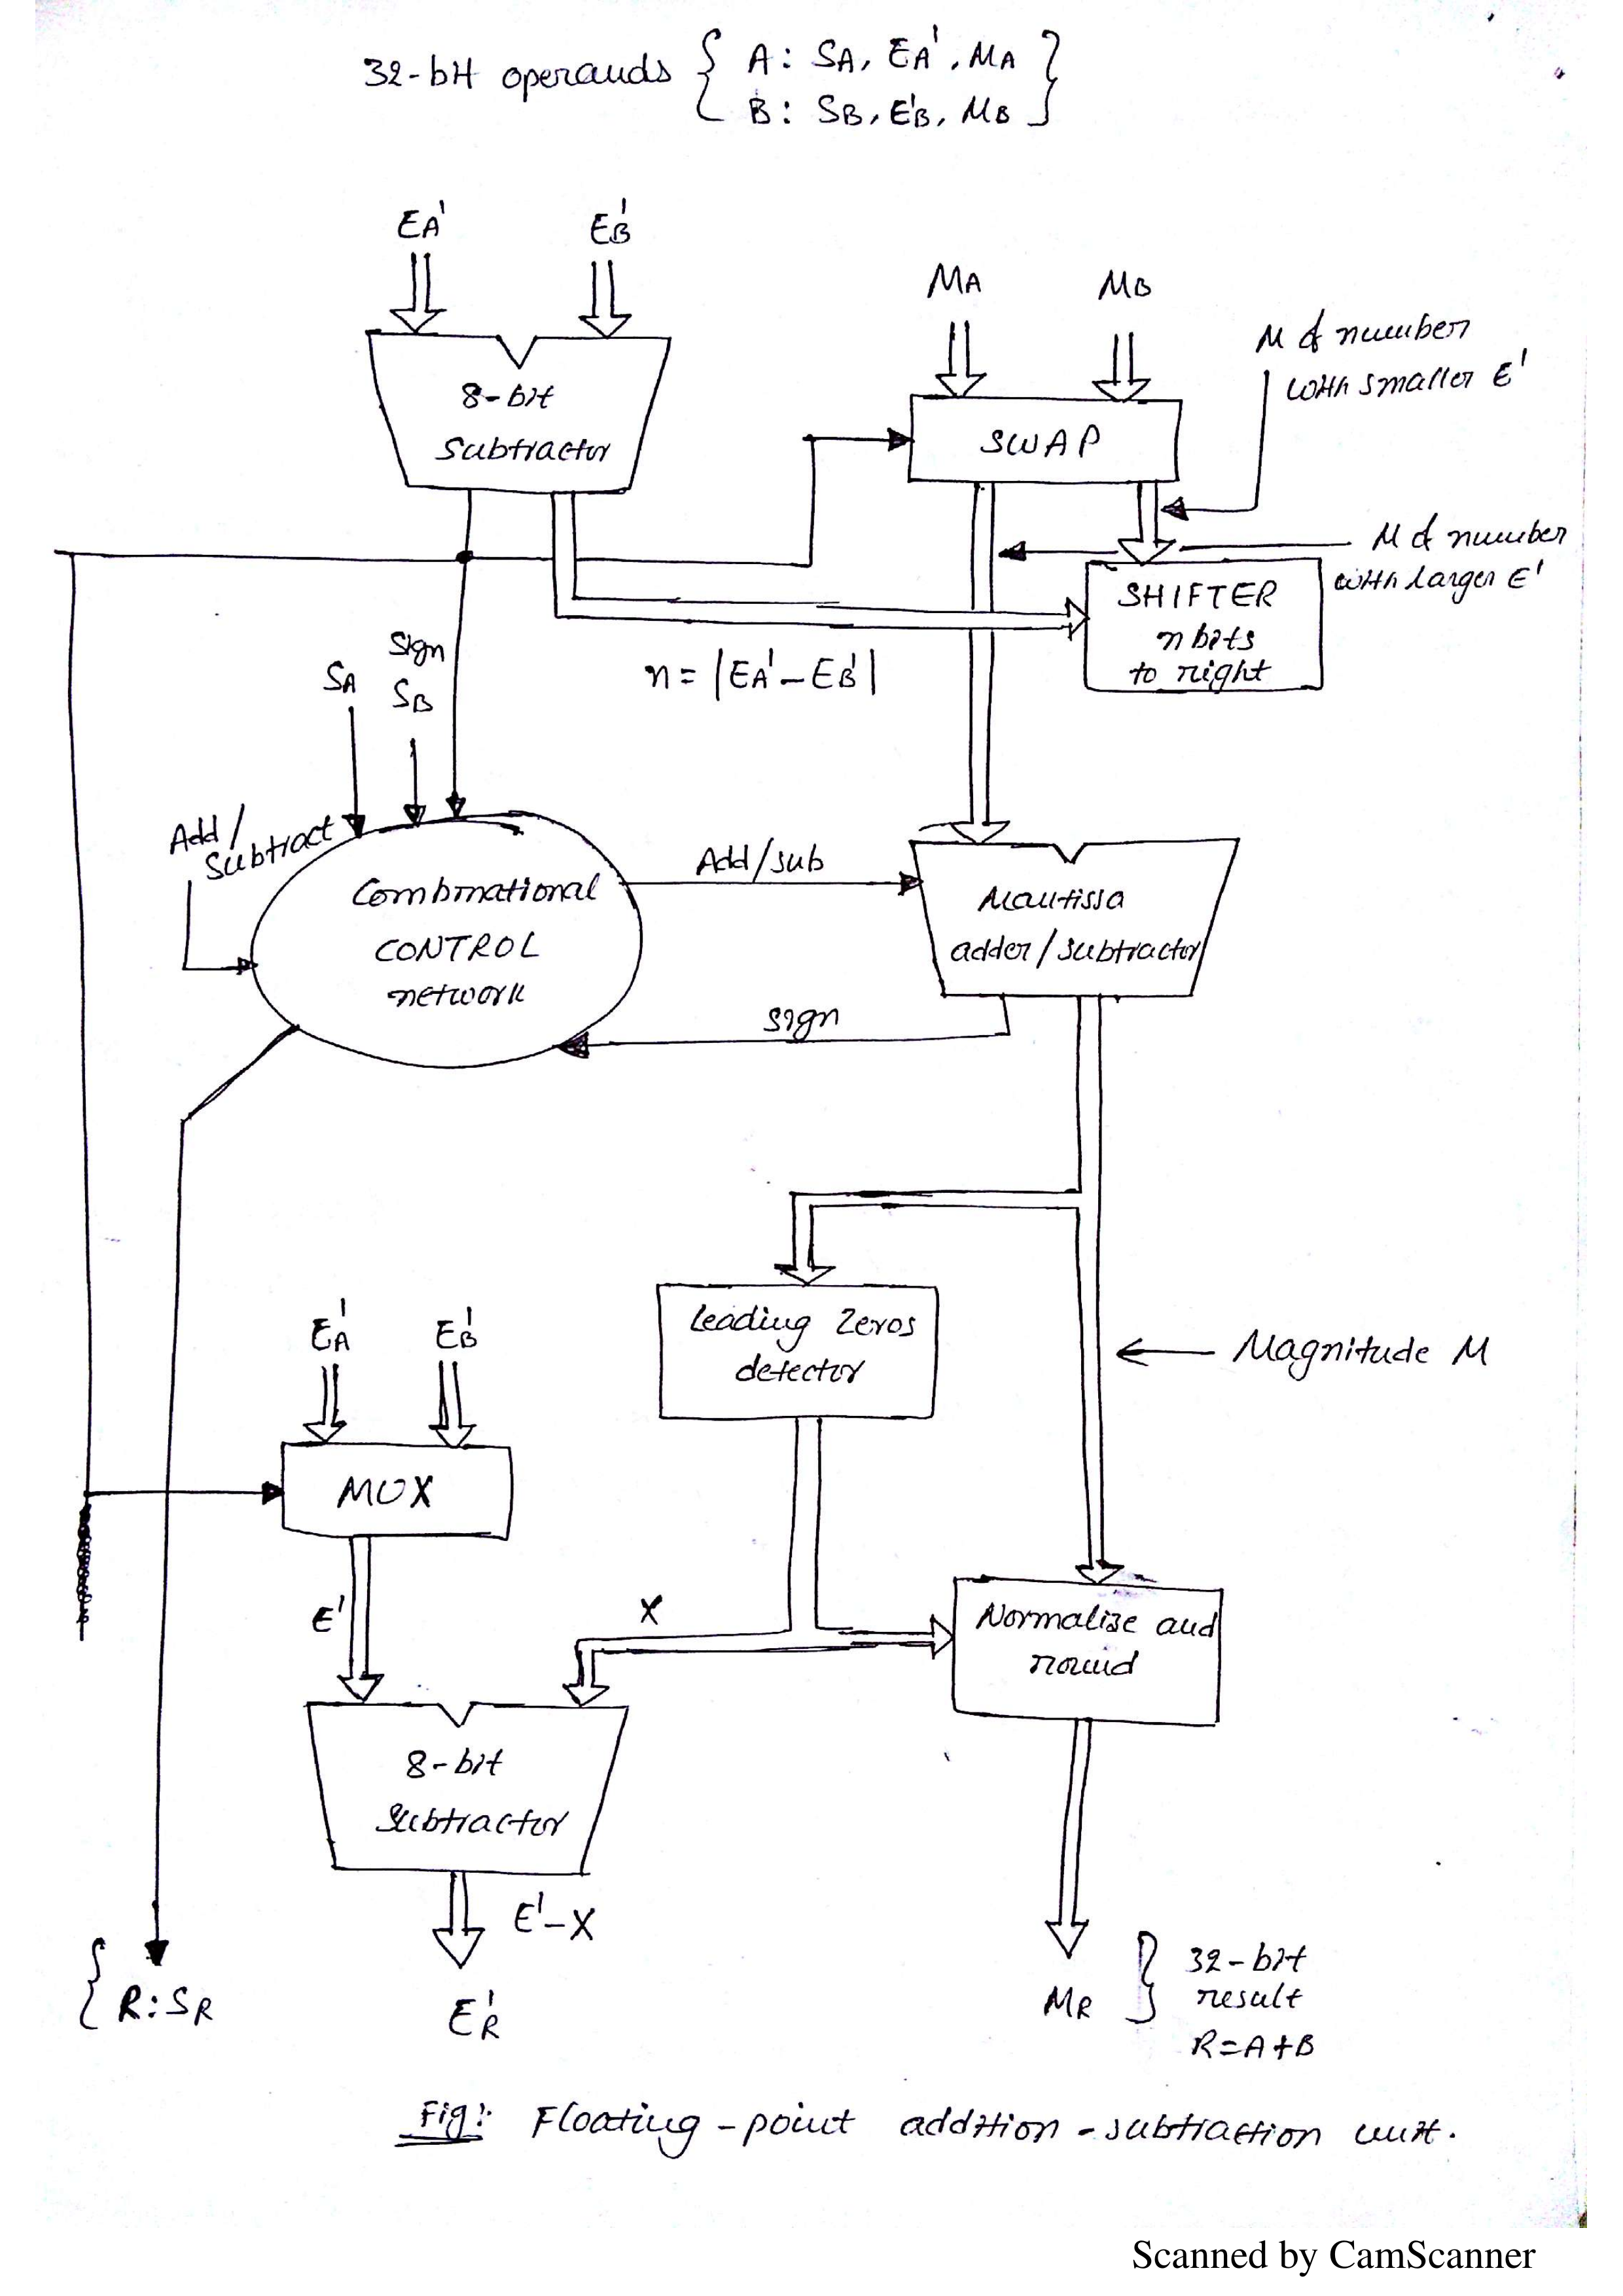 32-bit operands { A: SA, EA', MA }
{ B: SB, E'B, MB }
EA'
EB'
MA
MB
M of number
with smaller E'
8-bit
Subtractor
SWAP
M of number
with larger E'
SHIFTER
n bits
to right
n = |EA' - EB'|
Sign
SA
SB
Add/
Subtract
Combinational
CONTROL
network
Add/sub
Mantissa
adder/subtractor
sign
Leading Zeros
detector
Magnitude M
EA'
EB'
MUX
E'
X
Normalize and
round
8-bit
Subtractor
E'-X
{ R: SR
E'R
MR }
32-bit
result
R=A+B
Fig: Floating-point addition-subtraction unit.
Scanned by CamScanner